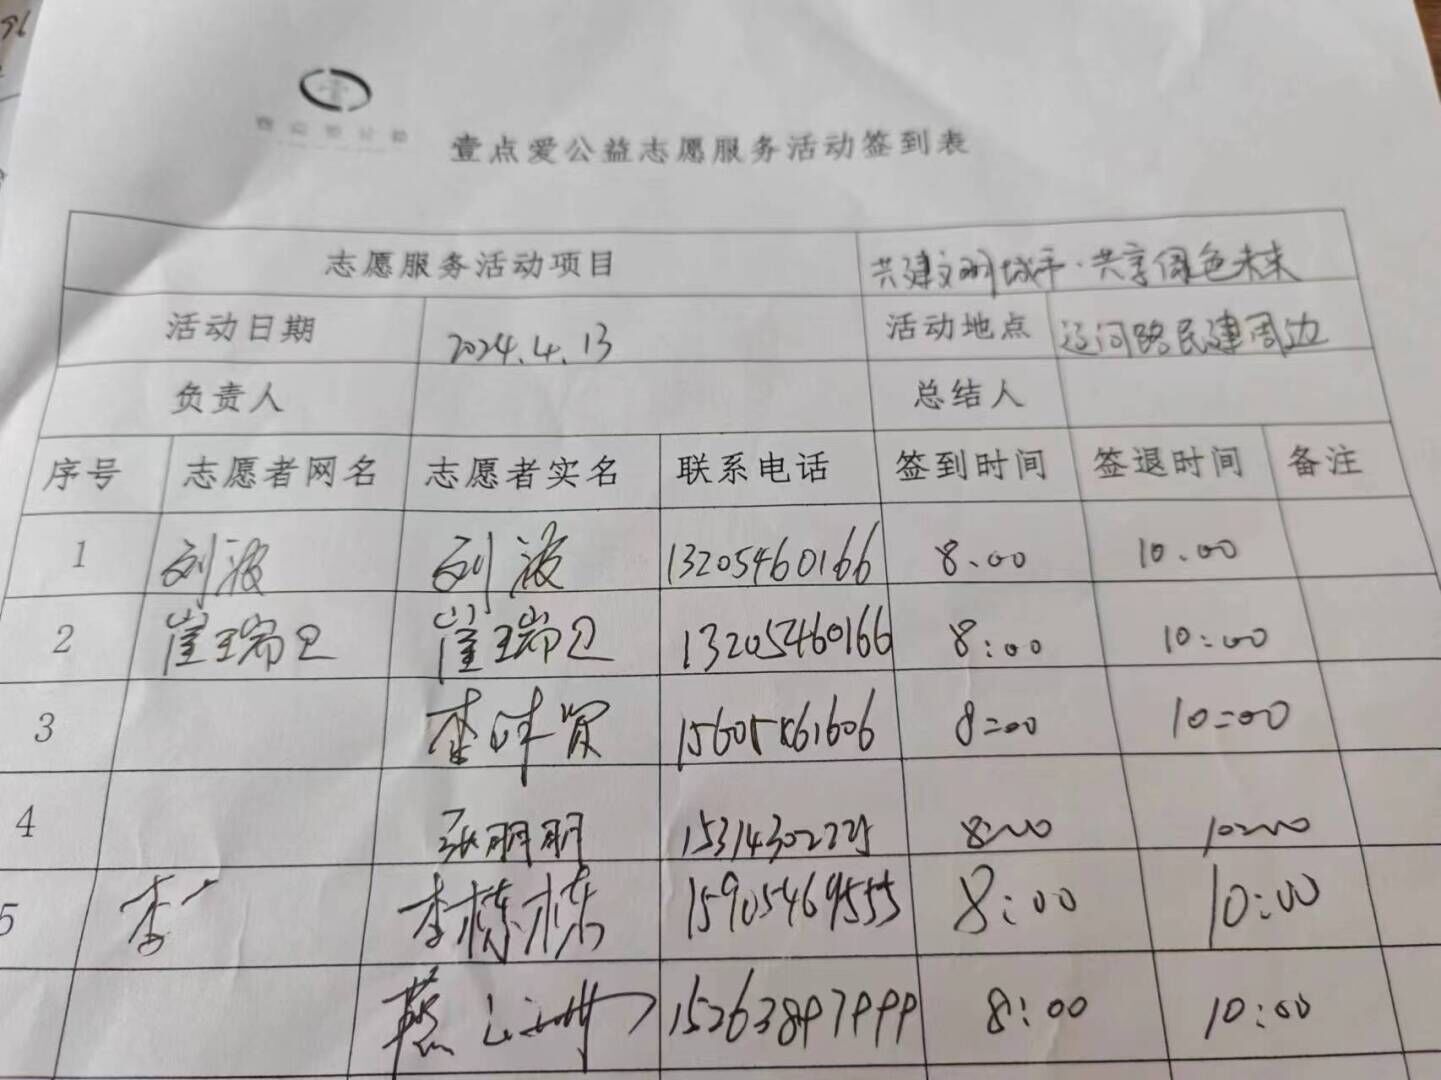 壹点爱公益志愿服务活动签到表
志愿服务活动项目 共建文明城市·共享绿色未来
活动日期 2024.4.13 活动地点 辽河路民建周边
负责人 总结人
序号 志愿者网名 志愿者实名 联系电话 签到时间 签退时间 备注
1 刘波 刘波 13205460166 8.00 10.00
2 崔瑞卫 崔瑞卫 13205460166 8:00 10:00
3 李 贤 8:00 10:00
4 张朋朋 8:00 10:00
5 李 李栋栋 15905469555 8:00 10:00
燕 8:00 10:00